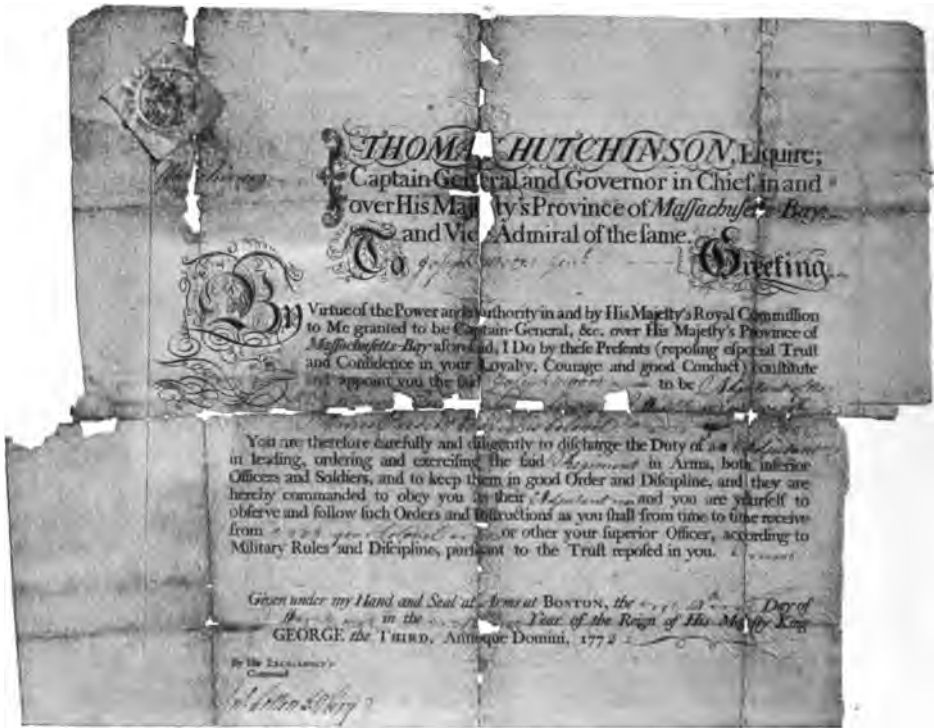 THOMAS HUTCHINSON, Eſquire;
Captain General and Governor in Chief, in and
over His Majeſty's Province of Maſſachuſetts-Bay,
and Vice Admiral of the ſame.
To Joseph Moors Gent. Greeting
By Virtue of the Power and Authority in and by His Majeſty's Royal Commiſſion
to Me granted to be Captain-General, &c. over His Majeſty's Province of
Maſſachuſetts-Bay aforeſaid, I Do by theſe Preſents (repoſing eſpecial Truſt
and Confidence in your Loyalty, Courage and good Conduct) conſtitute
and appoint you the ſaid Joseph Moors to be Adjutant of the
You are therefore carefully and diligently to diſcharge the Duty of an Adjutant
in leading, ordering and exerciſing the ſaid Regiment in Arms, both inferior
Officers and Soldiers, and to keep them in good Order and Diſcipline, and they are
hereby commanded to obey you as their Adjutant and you are yourſelf to
obſerve and follow ſuch Orders and Inſtructions as you ſhall from time to time receive
from your Colonel or other your ſuperior Officer, according to
Military Rules and Diſcipline, purſuant to the Truſt repoſed in you.
Given under my Hand and Seal at Arms at BOSTON, the Day of
in the Year of the Reign of His Majeſty King
GEORGE the THIRD, Annoque Domini, 177
By His EXCELLENCY'S
Command